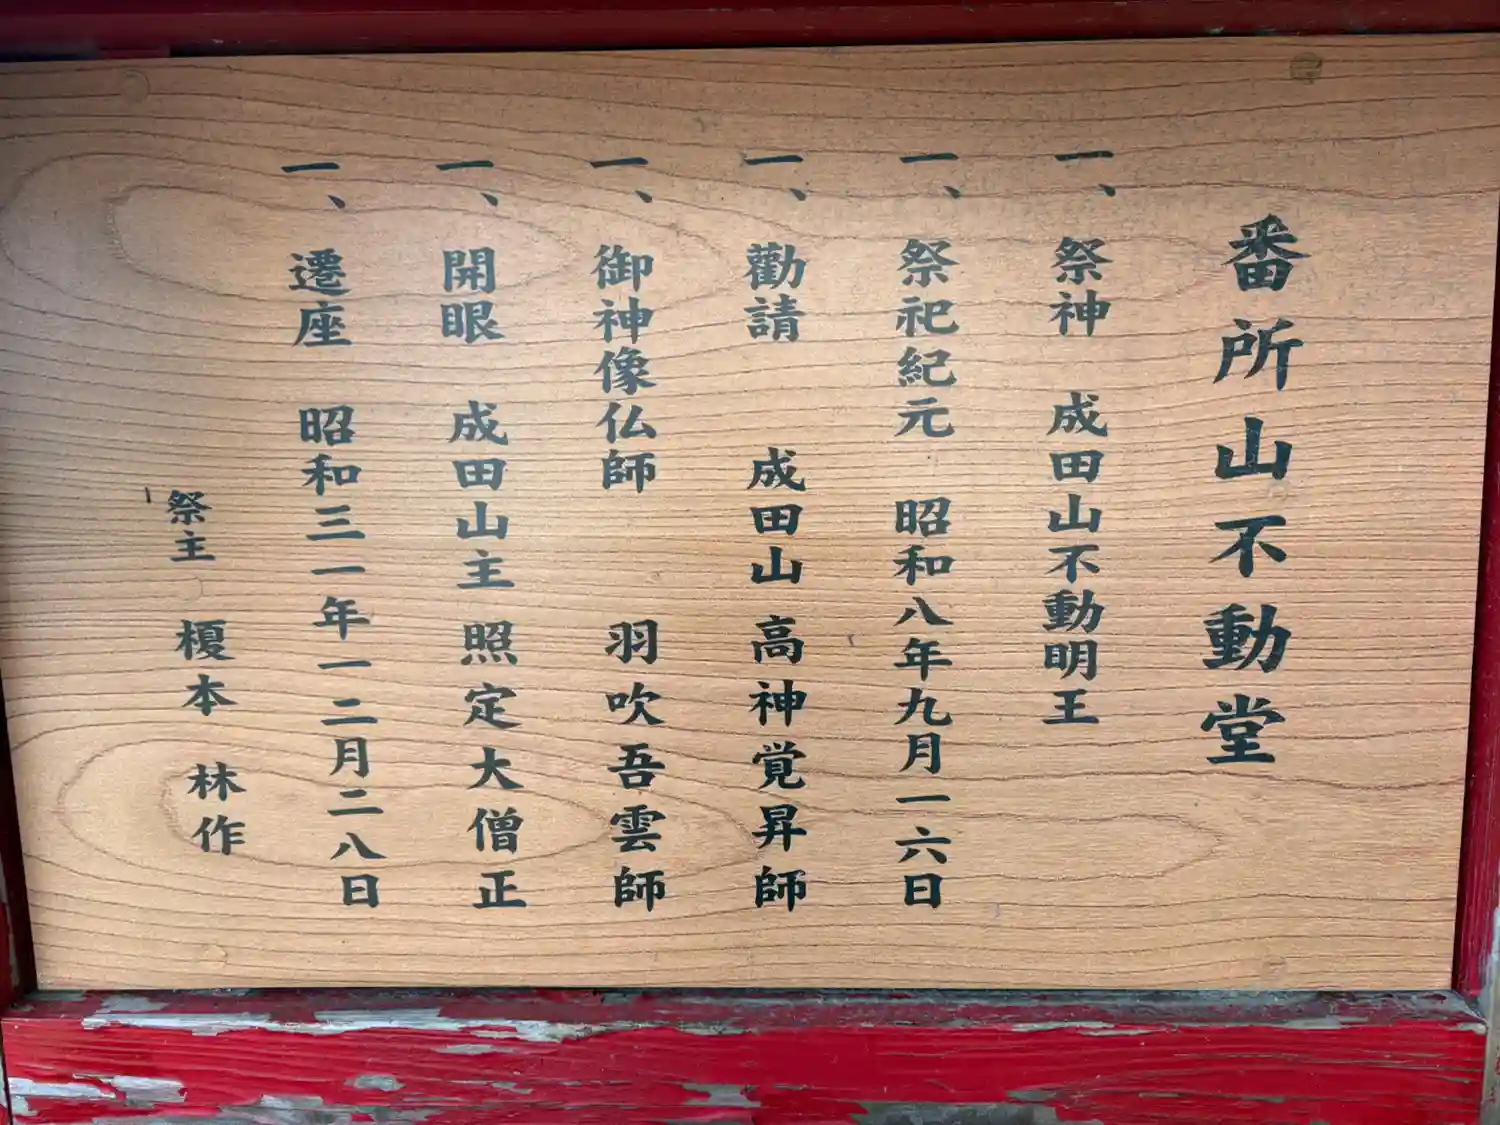 番所山不動堂
一、祭神　成田山不動明王
一、祭祀紀元　昭和八年九月一六日
一、勸請　成田山　高神覚昇師
一、御神像仏師　羽吹吾雲師
一、開眼　成田山主　照定大僧正
一、遷座　昭和三一年一二月二八日
祭主　榎本　林作